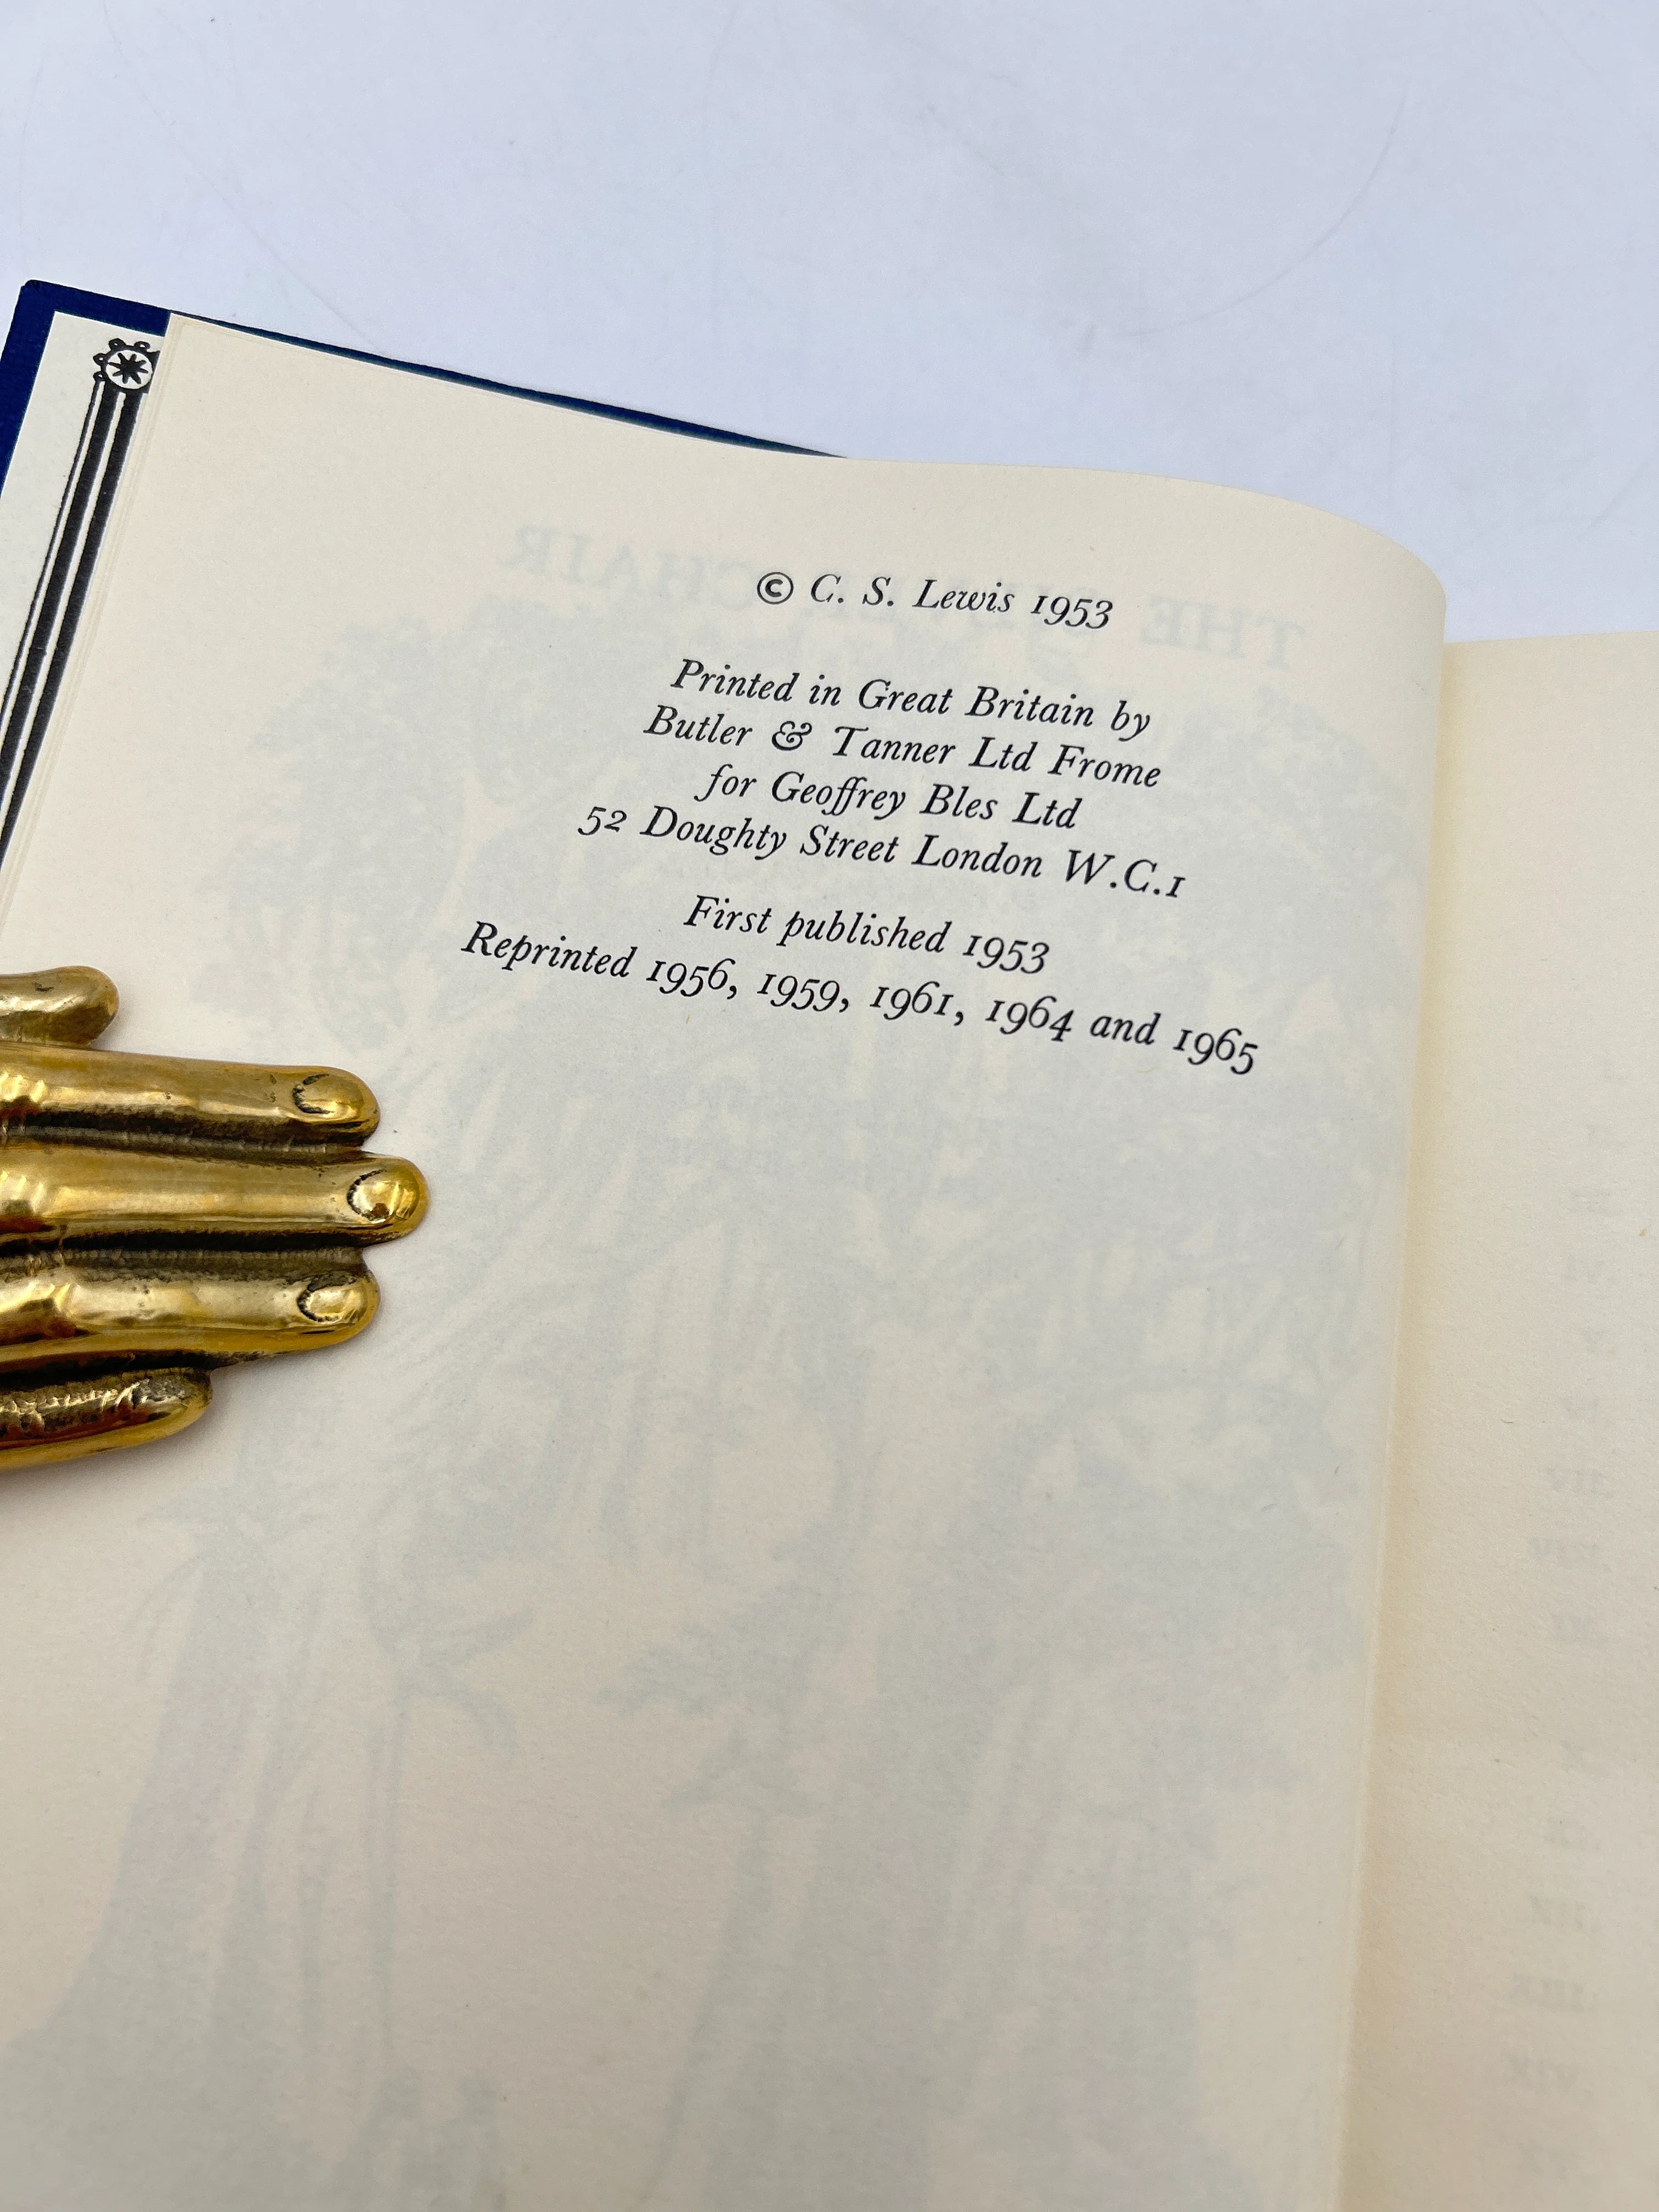 © C. S. Lewis 1953
Printed in Great Britain by
Butler & Tanner Ltd Frome
for Geoffrey Bles Ltd
52 Doughty Street London W.C.1
First published 1953
Reprinted 1956, 1959, 1961, 1964 and 1965